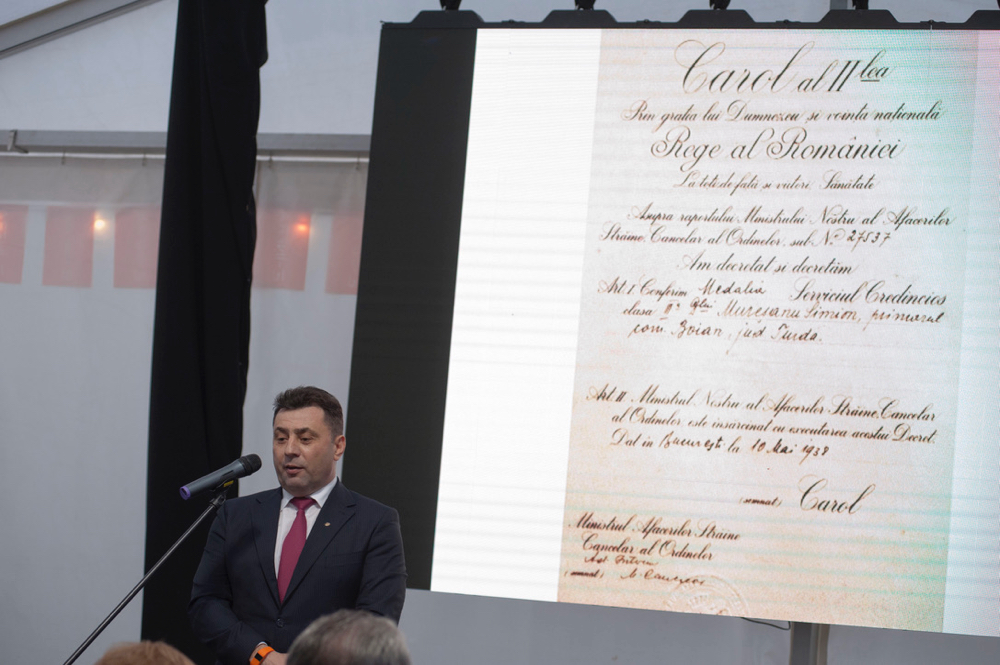 Carol al II lea
Prin gratia lui Dumnezeu si vointa natională
Rege al României
La toti de fată si viitori, Sănătate
Asupra raportului Ministrului Nostru al Afacerilor
Străine, Cancelar al Ordinelor, sub No. 27537
Am decretat si decretăm
Art. I Conferim Medalia Serviciul Credincios
clasa II-a D-lui Mureșanu Simion, primarul
com. Boian, jud Turda.
Art. II Ministrul Nostru al Afacerilor Străine, Cancelar
al Ordinelor, este însărcinat cu executarea acestui Decret.
Dat în București la 10 Mai 1938
(semnat) Carol
Ministrul Afacerilor Străine
Cancelar al Ordinelor
(semnat)